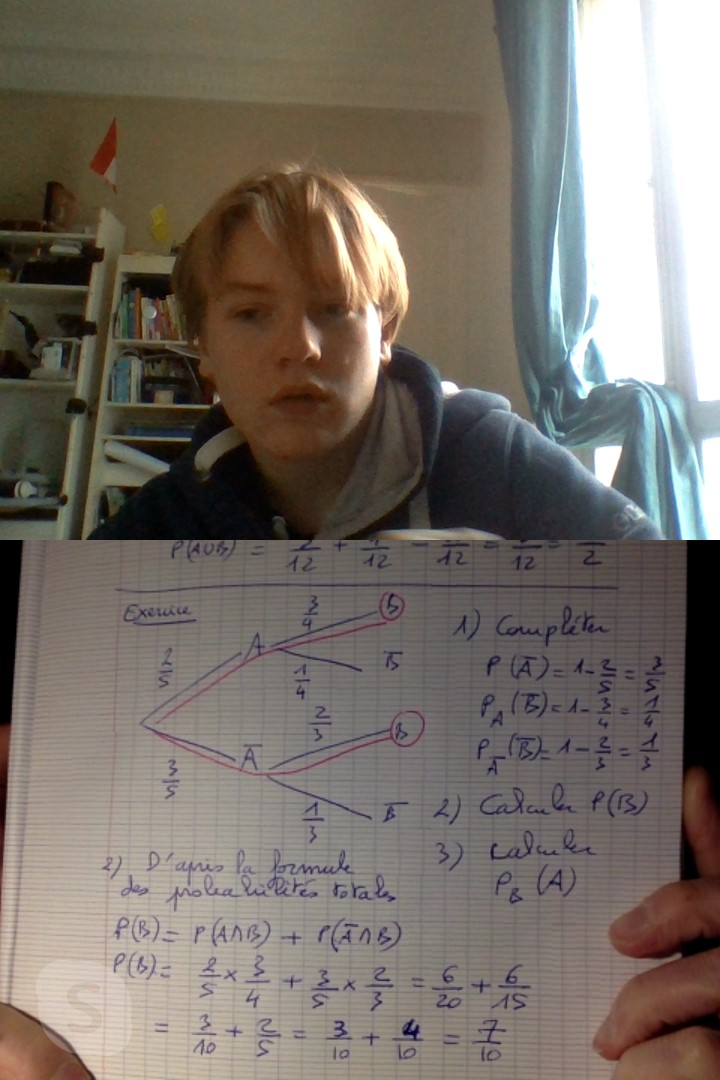 P(A∪B) = /12 + /12 - /12 = /12 = /2
Exercice
2/5 A 3/4 B
1/4 B̅
3/5 A̅ 2/3 B
1/3 B̅
1) Compléter
P(A̅) = 1 - 2/5 = 3/5
P_A(B̅) = 1 - 3/4 = 1/4
P_A̅(B̅) = 1 - 2/3 = 1/3
2) Calculer P(B)
3) Calculer
P_B(A)
2) D'après la formule
des probabilités totales
P(B) = P(A∩B) + P(A̅∩B)
P(B) = 2/5 × 3/4 + 3/5 × 2/3 = 6/20 + 6/15
= 3/10 + 2/5 = 3/10 + 4/10 = 7/10
S